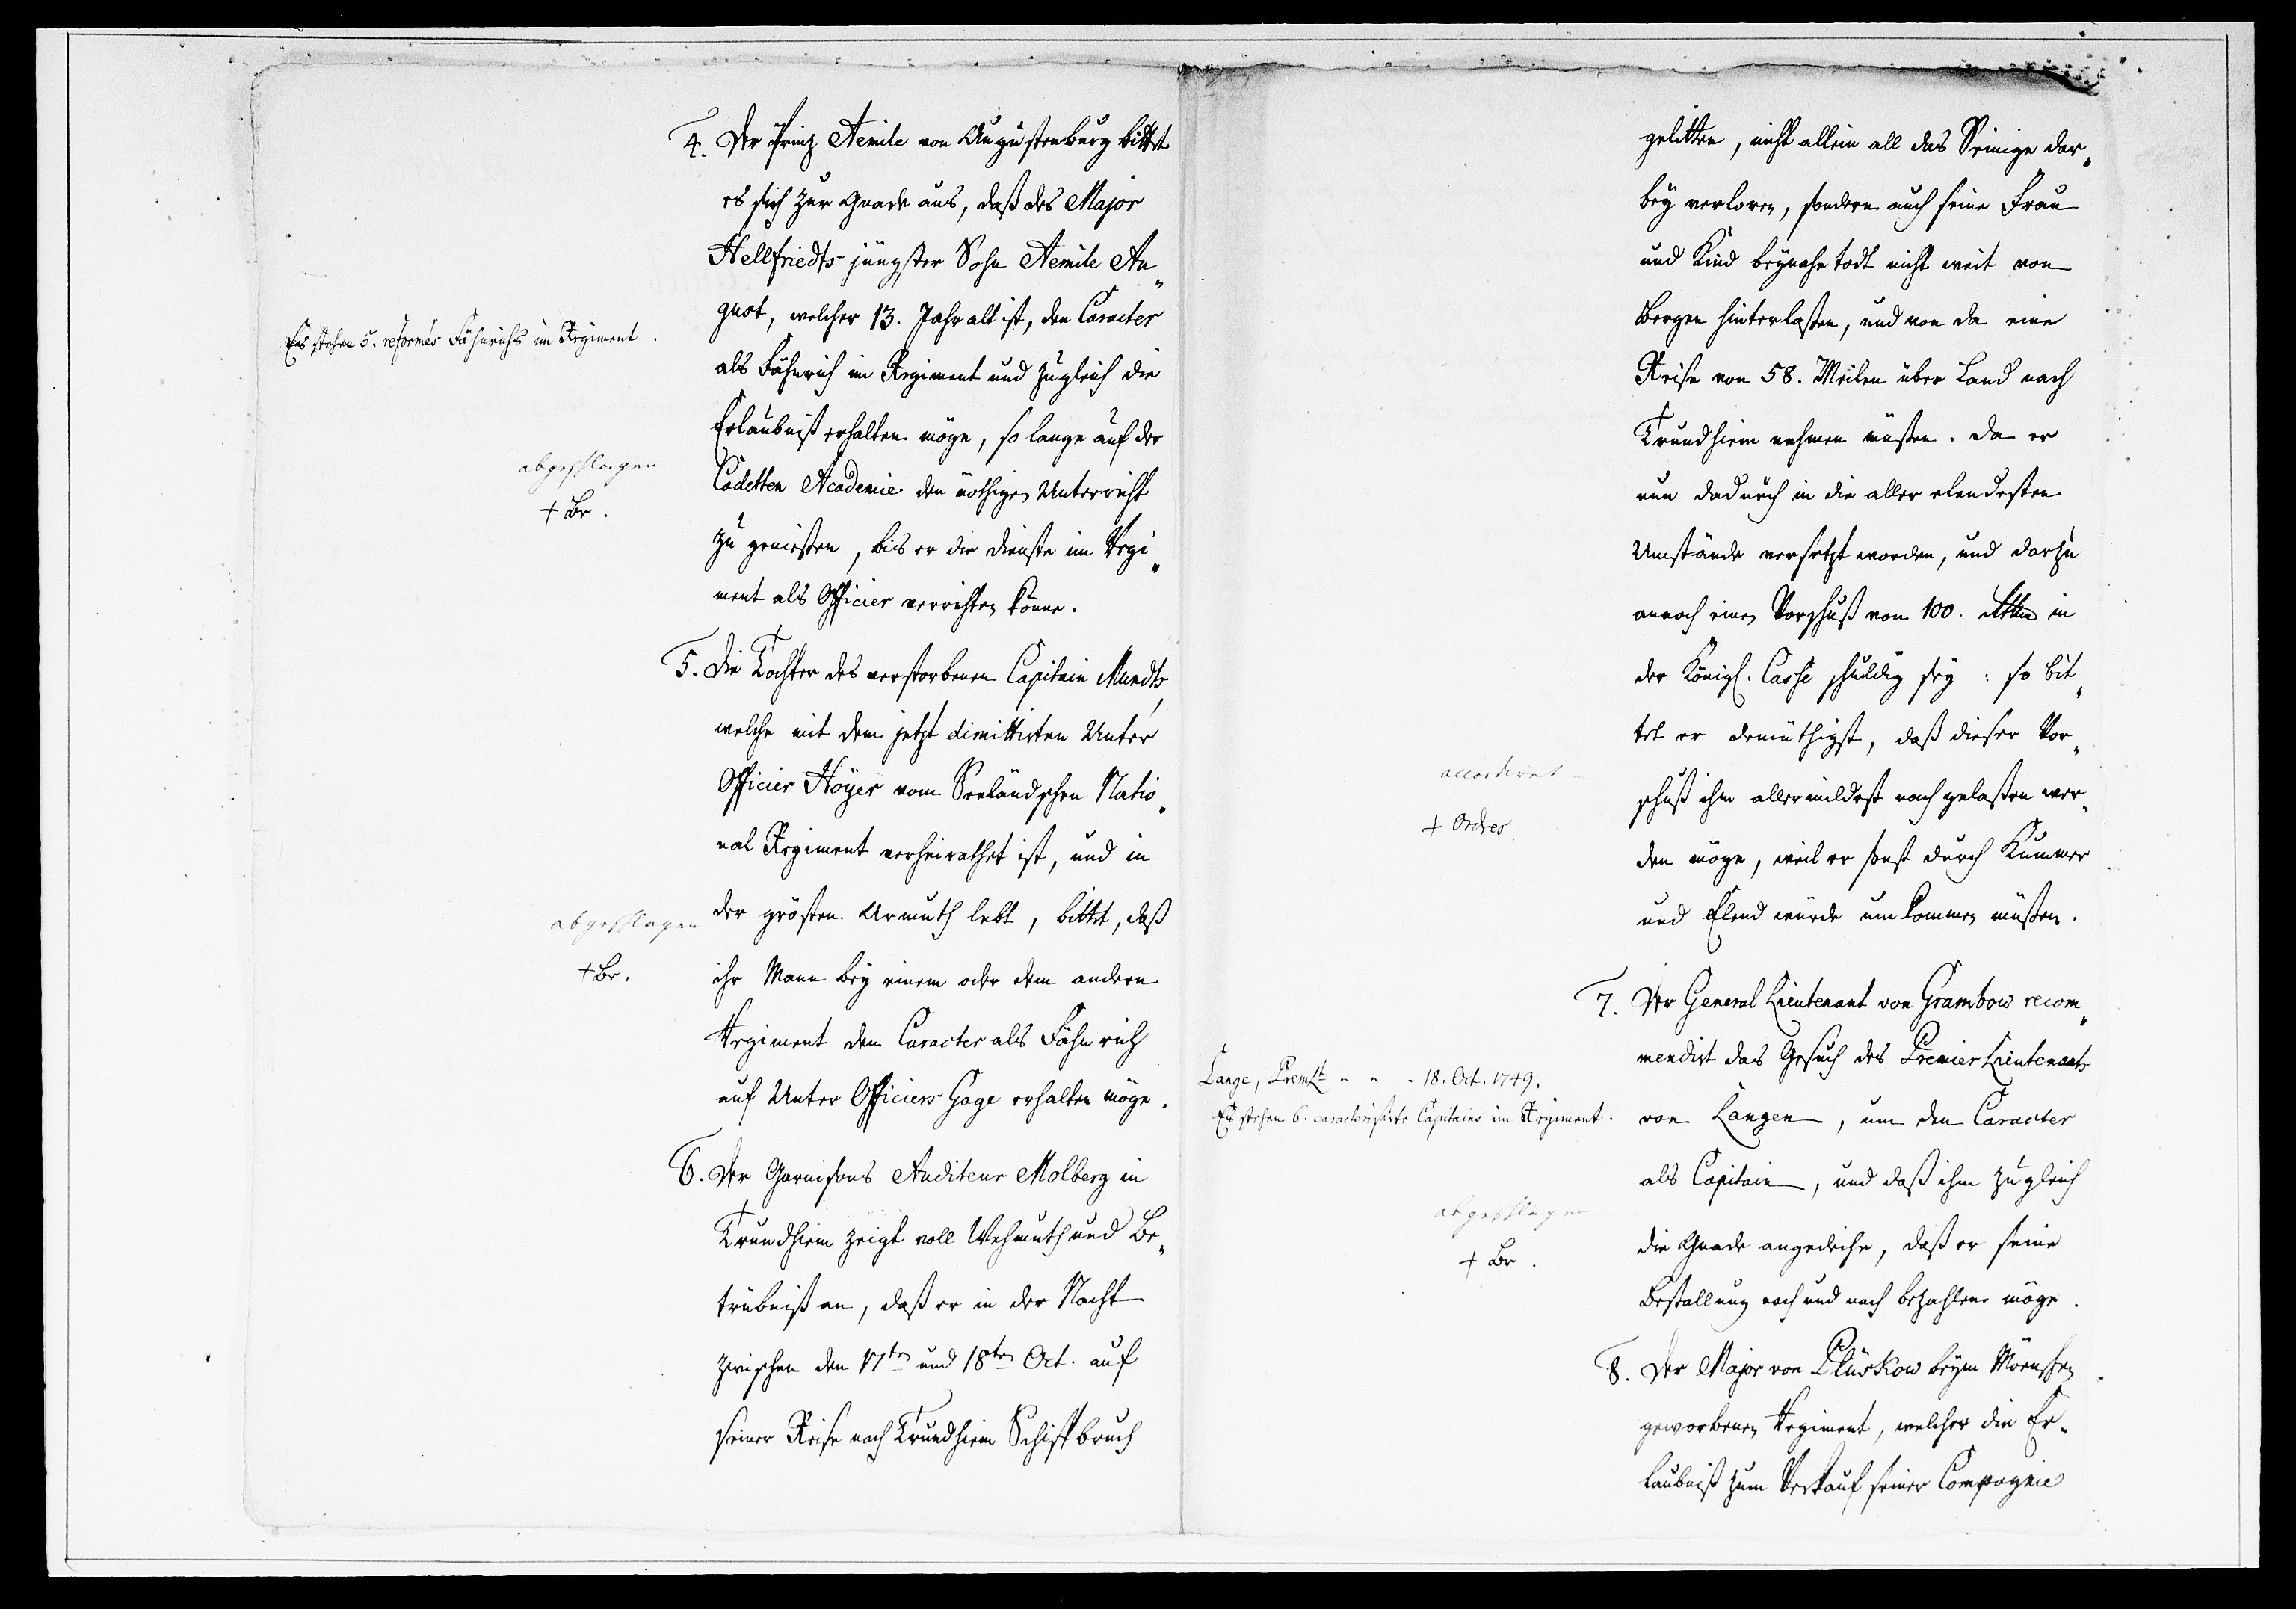 4. Der Prinz Aemile von Augustenburg bittet
es sich zur Gnade aus, daß des Major
Hellfriedts jüngster Sohn Aemile Au„
gust, welcher 13. Jahr alt ist, den Caracter
Es stehen 5. reformés Fähnrichs im Regiment.
als Fähnrich im Regiment und zugleich die
Erlaubniß erhalten möge, so lange auf der
abgeschlagen
Cadetten Academie den nöthigen Unterricht
+ Br.
zu genießen, bis er die Dienste im Regi„
ment als Officier verrichten könne.
5. Die Tochter des verstorbenen Capitain Mundts,
welche mit dem jetzt dimittirten Unter
Officier Höyer vom Seeländschen Natio„
nal Regiment verheirathet ist, und in
abgeschlagen
der grösten Armuth lebt, bittet, daß
+ Br.
ihr Mann bey einem oder dem andern
Regiment den Caracter als Fähnrich
auf Unter Officiers Gage erhalten möge.
6. Der Garnisons Auditeur Molberg in
Trundhiem zeigt voll Wehmuth und Be„
trübniß an, daß er in der Nacht
zwischen den 17ten und 18ten Oct. auf
seiner Reise nach Trundhiem Schiffbruch
gelitten, nicht allein all das Seinige dar„
bey verloren, sondern auch seine Frau
und Kind beynahe todt nicht weit von
Bergen hinterlaßen, und von da eine
Reise von 58. Meilen über Land nach
Trundhiem nehmen müßen. Da er
nun dadurch in die aller elendesten
Umstände versetzt worden, und darzu
annoch einen Vorschuß von 100. Rthlr in
der Königl. Casse schuldig sey: so bit„
tet er demüthigst, daß dieser Vor„
accordiret
schuß ihm allermildest nachgelaßen wer„
+ Ordres
den möge, weil er sonst durch Kummer
und Elend würde umkommen müßen.
7. Der General Lieutenant von Grambow recom„
mendirt das Gesuch des Premier Lieutenants
Lange, PremLt „ „ - 18. Oct. 1749.
Es stehen 6. caracterisirte Capitains im Regiment.
von Langen, um den Caracter
als Capitain, und daß ihm zugleich
abgeschlagen
die Gnade angedeihe, daß er seine
+ Br.
Bestallung nach und nach bezahlen möge.
8. Der Major von Plüskow beym Möenschen
geworbenen Regiment, welcher die Er„
laubniß zum Verkauf seiner Compagnie